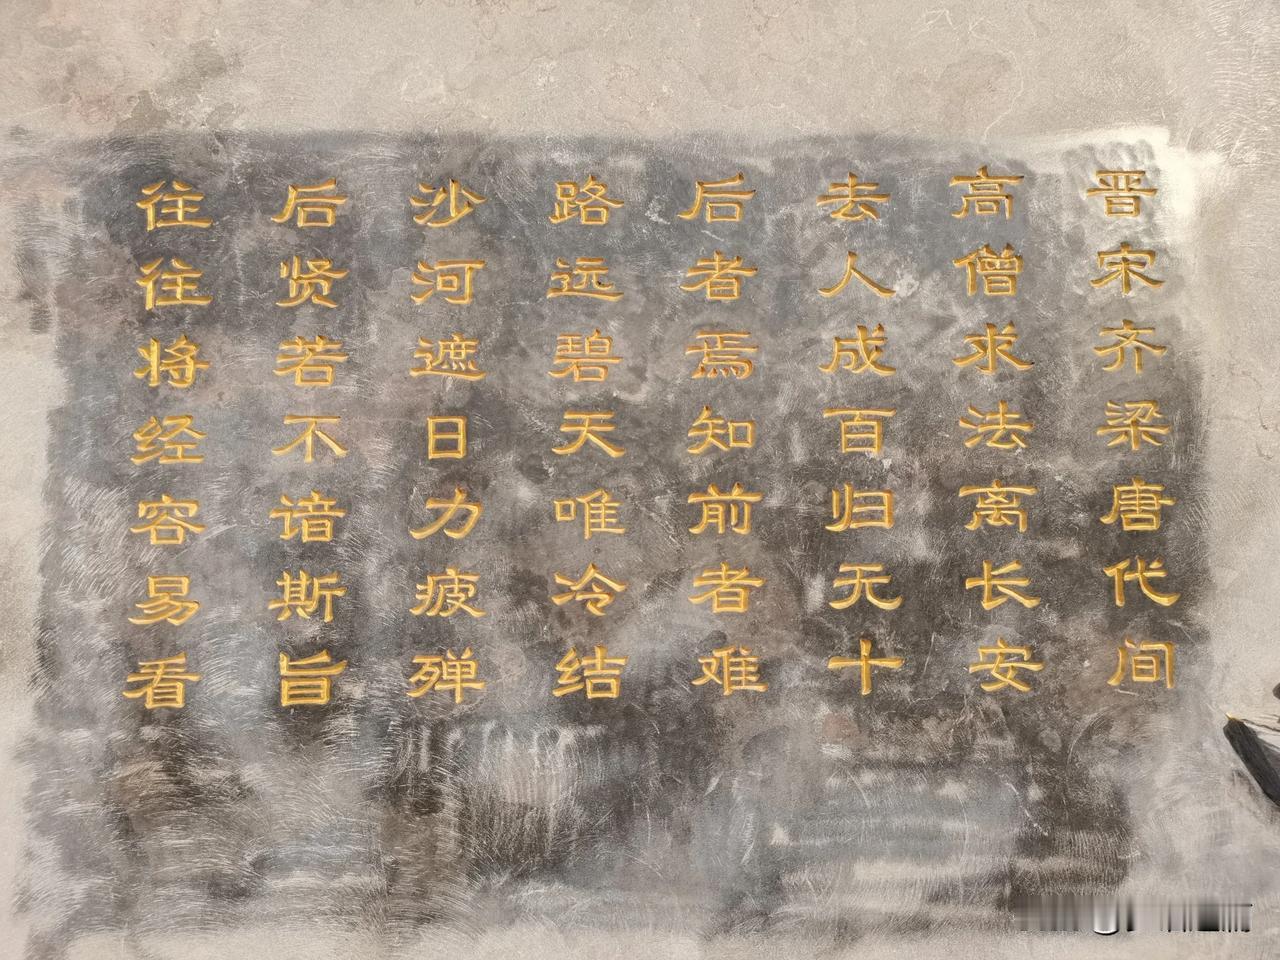 晋宋齐梁唐代间
高僧求法离长安
去人成百归无十
后者焉知前者难
路远碧天唯冷结
沙河遮日力疲殚
后贤若不谙斯旨
往往将经容易看